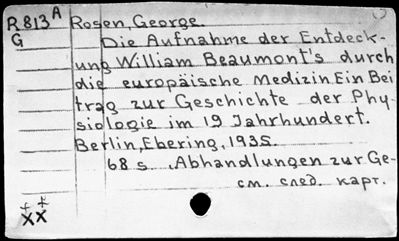 R 813 A Rosen, George.
G Die Aufnahme der Entdeck-
ung William Beaumont's durch
die europäische Medizin Ein Bei
trag zur Geschichte der Phy-
siologie im 19 Jahrhundert.
Berlin, Ebering, 1935.
68 s. Abhandlungen zur Ge-
см. след. карт.
XX